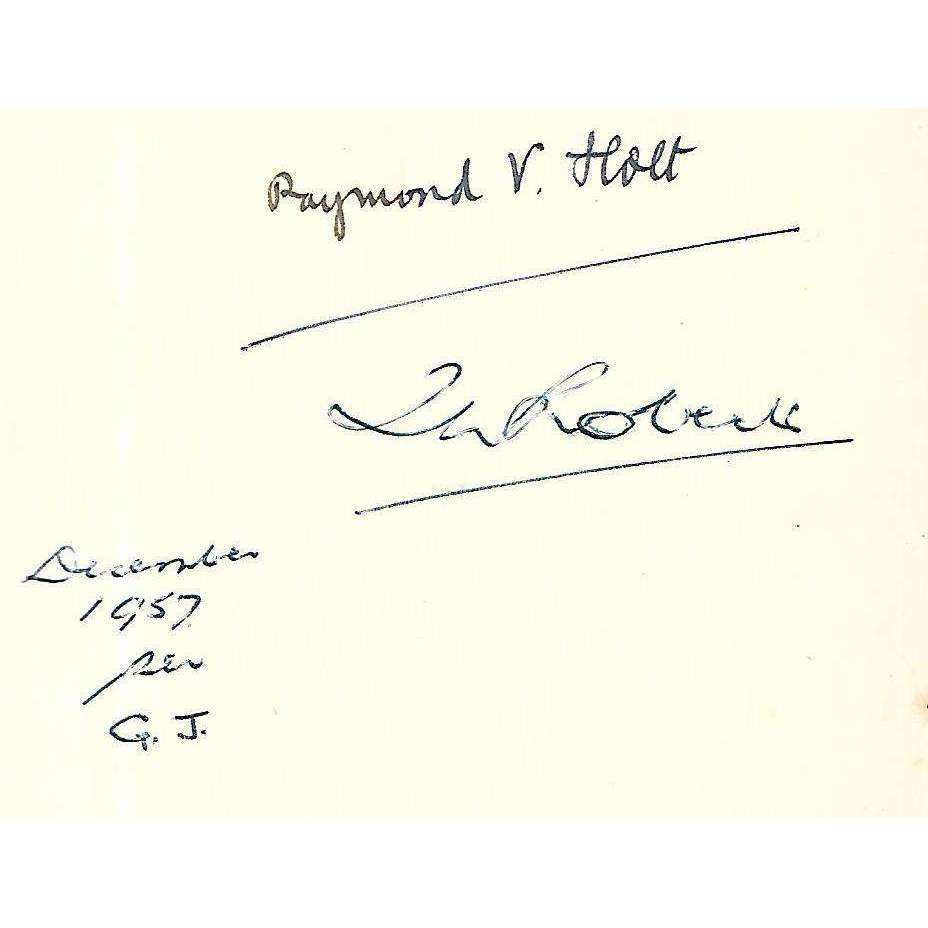 Raymond V. Holt
Roberts
December
1957
per
G. J.